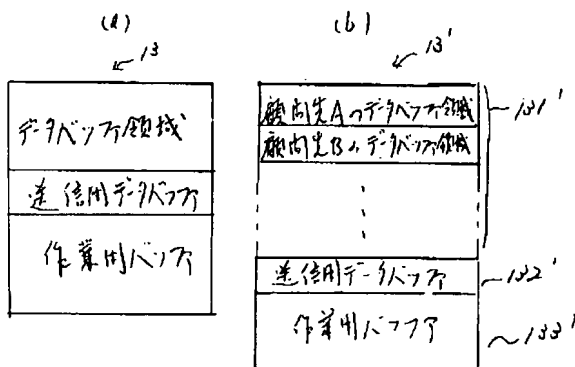 (a)
13
データバッファ領域
送信用データバッファ
作業用バッファ
(b)
13'
顧問先Aのデータバッファ領域
顧問先Bのデータバッファ領域
131'
送信用データバッファ
132'
作業用バッファ
133'